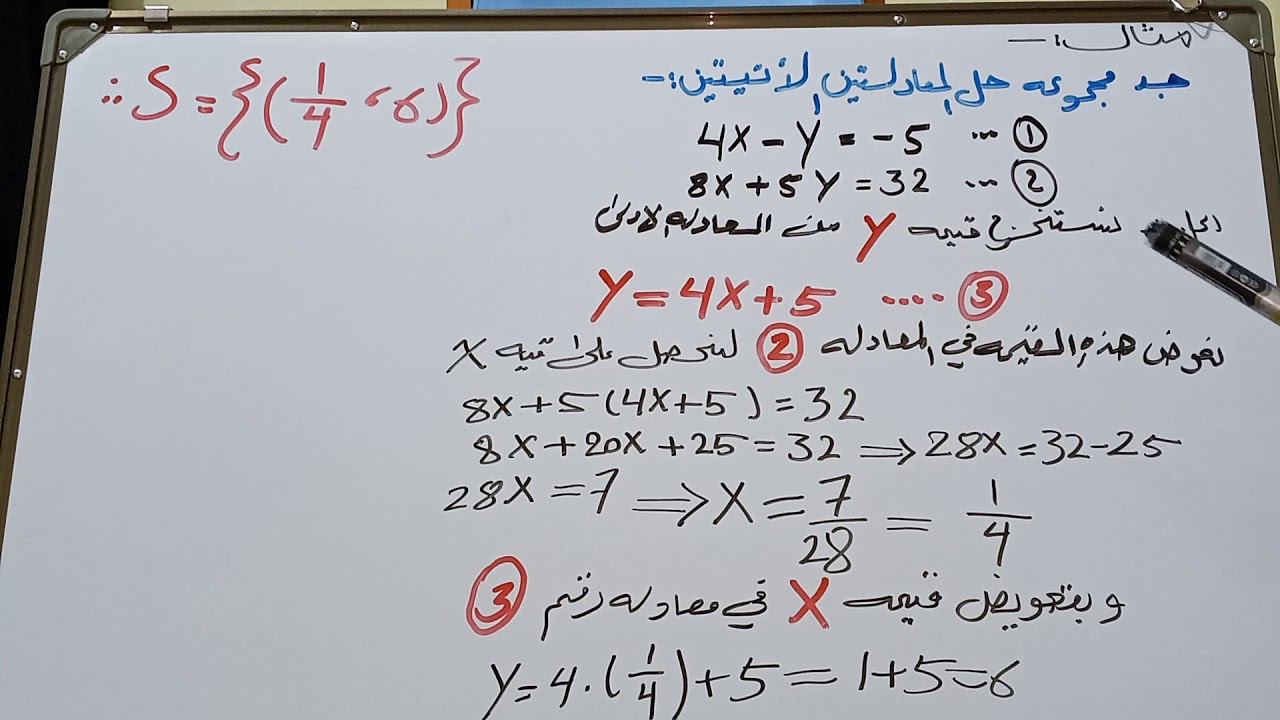 مثال:-
جد مجموعه حل المعادلتين الأتيتين:-
4X - Y = -5 ... ①
8X + 5Y = 32 ... ②
الحل: نستخرج قيمه Y من المعادله الاولى
Y = 4X + 5 .... ③
نعوض هذه القيمه في المعادله ② لنحصل على قيمه X
8X + 5(4X + 5) = 32
8X + 20X + 25 = 32 ⟹ 28X = 32 - 25
28X = 7 ⟹ X = 7/28 = 1/4
وبتعويض قيمه X في معادله رقم ③
Y = 4 · (1/4) + 5 = 1 + 5 = 6
∴ S = {(1/4 ، 6)}